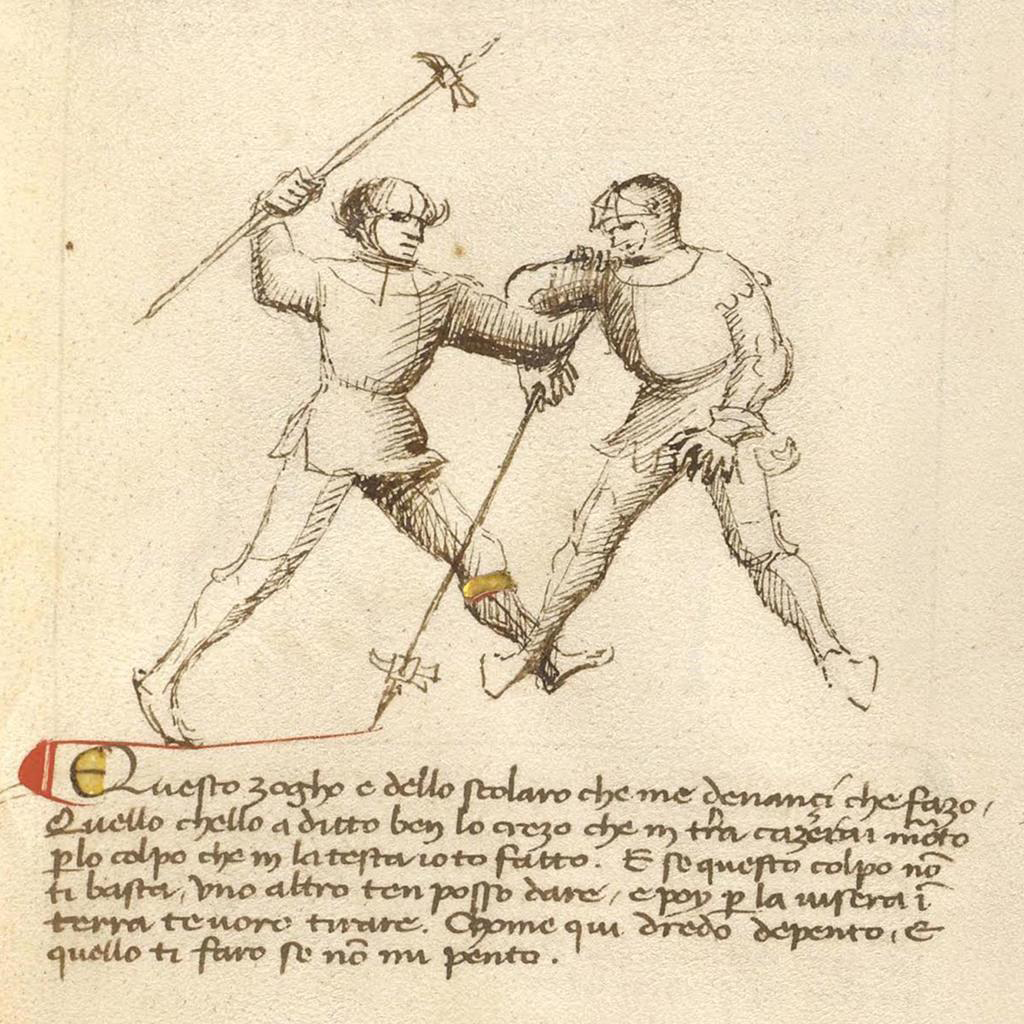 Questo zogho e dello scolaro che me denanci che fazo,
Quello chello a ditto ben lo crezo che in tr̃a cazerai m̃oto
ꝑlo colpo che in la testa io to fatto. E se questo colpo nō
ti basta, uno altro ten posso dare, e poy ꝑ la uisera ī
terra te uoro tirare. Chome qui dredo depento, E
quello ti faro se nō mi pento.